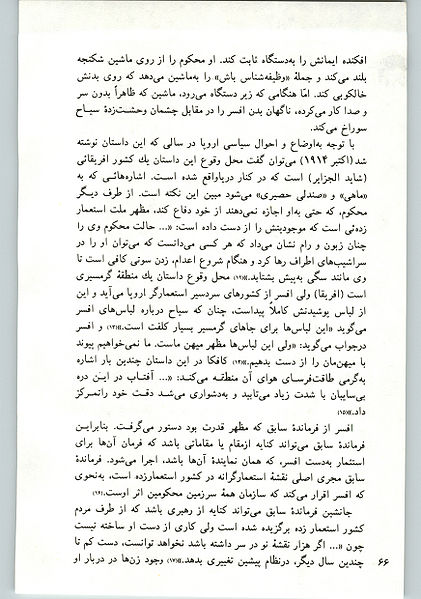 افکنده ایمانش را به‌دستگاه ثابت کند. او محکوم را از روی ماشین شکنجه
بلند می‌کند و جملهٔ «وظیفه‌شناس باش» را به‌ماشین می‌دهد که روی بدنش
خالکوبی کند. امّا هنگامی که زیر دستگاه می‌رود، ماشین که ظاهراً بدون سر
و صدا کار می‌کرده، ناگهان بدن افسر را در مقابل چشمان وحشت‌زدهٔ سیاح
سوراخ می‌کند.
با توجه به‌اوضاع و احوال سیاسی اروپا در سالی که این داستان نوشته
شد (اکتبر ۱۹۱۴) می‌توان گفت محل وقوع این داستان یك کشور افریقائی
(شاید الجزایر) است که در کنار دریاواقع شده است. اشاره‌هائی که به
«ماهی» و «صندلی حصیری» می‌شود مبین این نکته است. از طرف دیگر
محکوم، که حتی به‌او اجازه نمی‌دهند از خود دفاع کند، مظهر ملت استعمار
زده‌ئی است که موجودیتش را از دست داده است: «... حالت محکوم وی را
چنان زبون و رام نشان می‌داد که هر کسی می‌دانست که می‌توان او را در
سراشیب‌های اطراف رها کرد و هنگام شروع اعدام، زدن سوتی کافی است تا
وی مانند سگی به‌پیش بشتابد.»(۱۲) محل وقوع داستان یك منطقهٔ گرمسیری
است (افریقا) ولی افسر از کشورهای سردسیر استعمارگر اروپا می‌آید و این
از لباس پوشیدنش کاملاً پیداست، چنان که سیاح درباره لباس‌های افسر
می‌گوید «این لباس‌ها برای جاهای گرمسیر بسیار کلفت است.»(۱۳) و افسر
درجواب می‌گوید: «ولی این لباس‌ها مظهر میهن ماست. ما نمی‌خواهیم پیوند
با میهن‌مان را از دست بدهیم.»(۱۴) کافکا در این داستان چندین بار اشاره
به‌گرمی طاقت‌فرسای هوای آن منطقه می‌کند: «... آفتاب در این دره
بی‌سایبان با شدت زیاد می‌تابید و به‌دشواری می‌شد دقت خود رامتمرکز
داد.»(۱۵)
افسر از فرماندهٔ سابق که مظهر قدرت بود دستور می‌گرفت. بنابراین
فرماندهٔ سابق می‌تواند کنایه ازمقام یا مقاماتی باشد که فرمان آن‌ها برای
استثمار به‌دست افسر، که همان نمایندهٔ آن‌ها باشد، اجرا می‌شود. فرماندهٔ
سابق مجری اصلی نقشهٔ استعمارگرانه در کشور استعمارزده است، به‌نحوی
که افسر اقرار می‌کند که سازمان همهٔ سرزمین محکومین اثر اوست.(۱۶)
جانشین فرماندهٔ سابق می‌تواند کنایه از رهبری باشد که از طرف مردم
کشور استعمار زده برگزیده شده است ولی کاری از دست او ساخته نیست
چون «... اگر هزار نقشهٔ نو در سر داشته باشد نخواهد توانست، دست کم تا
چندین سال دیگر، درنظام پیشین تغییری بدهد.»(۱۷) وجود زن‌ها در دربار او
۶۶